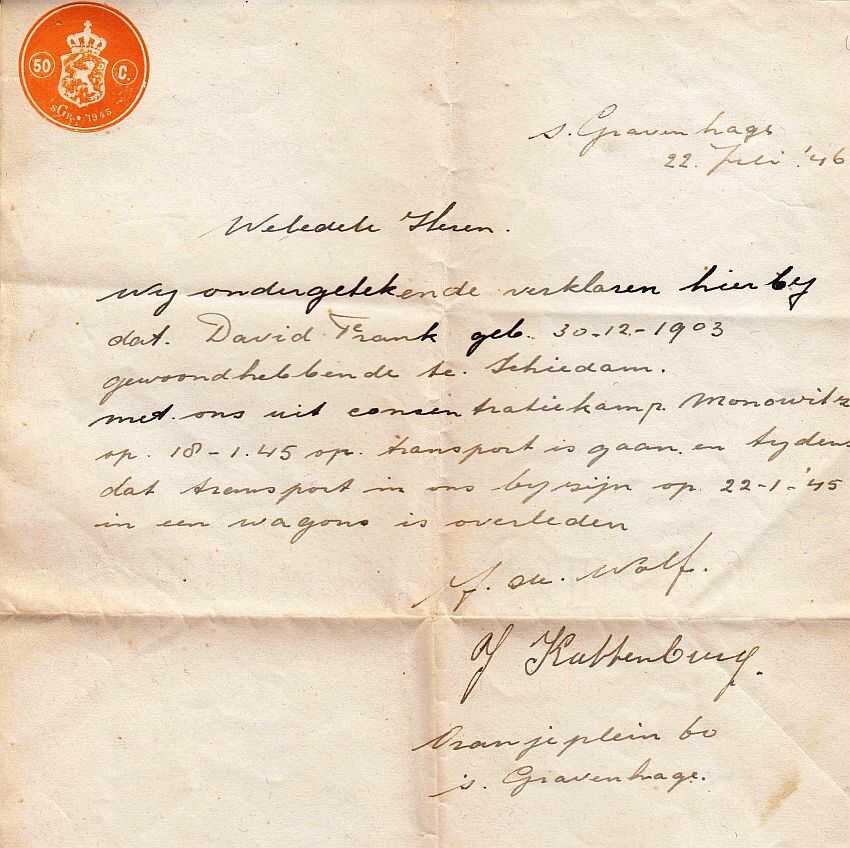 50 C.
sGr. 1945
s. Gravenhage
22 Juli '46
Weledele Heren.
Wy ondergetekende verklaren hierby
dat. David Frank geb. 30-12-1903
gewoondhebbende te. Schiedam.
met. ons uit consentratiekamp. Monowitz
op. 18-1.45 op. transport is gaan. en tydens
dat transport in ons byzijn op 22-1-'45
in een wagons is overleden
de. Wolf.
J Kattenburg.
Oranjeplein 60
s. Gravenhage.